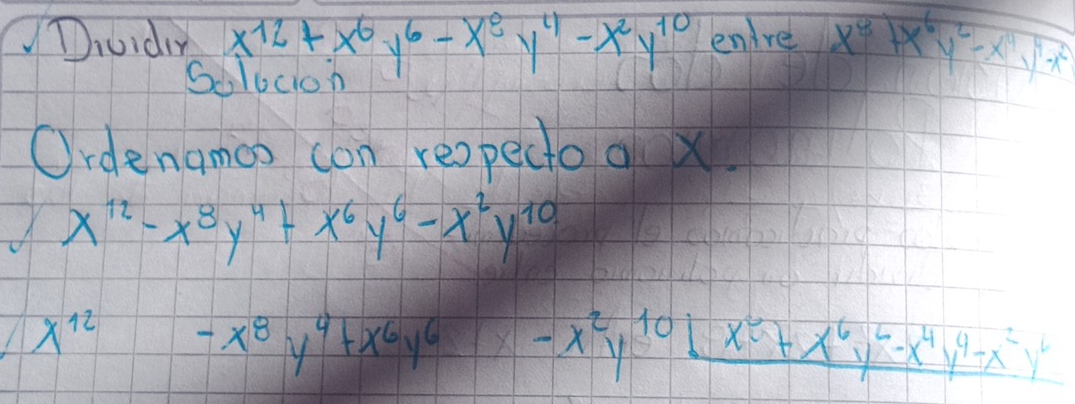 √ Dividir x¹² + x⁶y⁶ - x⁸y⁴ - x²y¹⁰ entre x⁸ + x⁶y² - x⁴y⁴ - x²
Solucion
Ordenamos con respecto a x.
√ x¹² - x⁸y⁴ + x⁶y⁶ - x²y¹⁰
√ x¹² - x⁸y⁴ + x⁶y⁶ - x²y¹⁰ | x⁸ + x⁶y² - x⁴y⁴ - x²y⁶